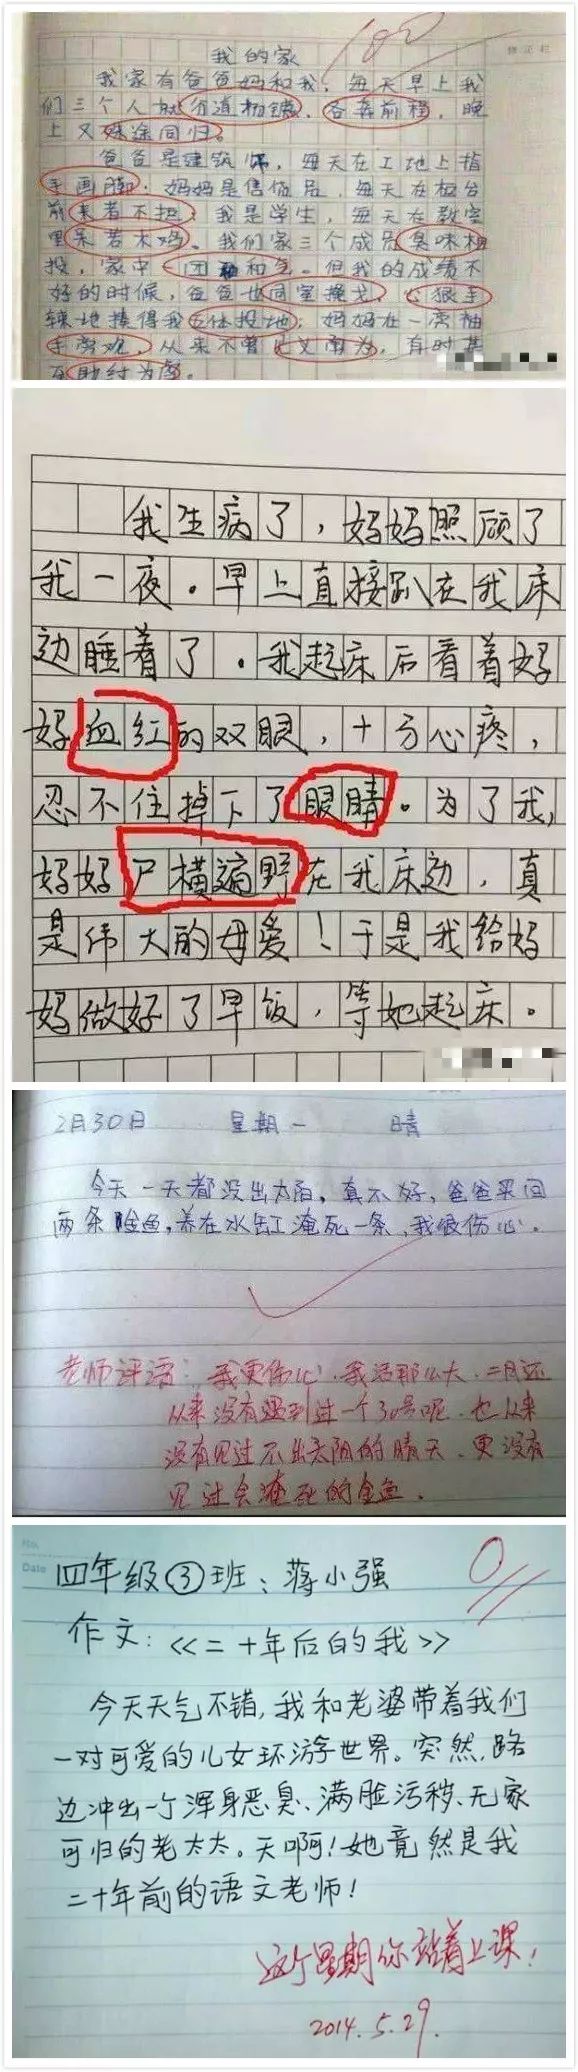 100
我的家
我家有爸爸妈和我，每天早上我
们三个人就分道杨镳，各奔前程，晚
上又殊途同归。
爸爸是建筑师，每天在工地上指
手画脚；妈妈是售货员，每天在柜台
前来者不拒；我是学生，每天在教室
里呆若木鸡。我们家三个成员臭味相
投，家中一团和气。但我的成绩不
好的时候，爸爸也同室操戈，心狠手
辣地揍得我五体投地；妈妈在一旁袖
手旁观，从来不曾见义勇为，有时甚
至助纣为虐。
我生病了，妈妈照顾了
我一夜。早上直接趴在我床
边睡着了。我起床后看着妈
妈血红的双眼，十分心疼，
忍不住掉下了眼睛。为了我，
妈妈尸横遍野在我床边，真
是伟大的母爱！于是我给妈
妈做好了早饭，等她起床。
2月30日 星期一 晴
今天一天都没出太阳，真不好，爸爸买回
两条金鱼，养在水缸淹死一条，我很伤心。
老师评语：我更伤心，我活那么大，二月还
从来没有遇到过一个30号呢，也从来
没有见过不出太阳的晴天，更没有
见过会淹死的金鱼。
No.
Date
四年级③班：蒋小强
0
作文：《二十年后的我》
今天天气不错，我和老婆带着我们
一对可爱的儿女环游世界。突然，路
边冲出一个浑身恶臭、满脸污秽、无家
可归的老太太。天啊！她竟然是我
二十年前的语文老师！
这个星期你站着上课！
2014.5.29.